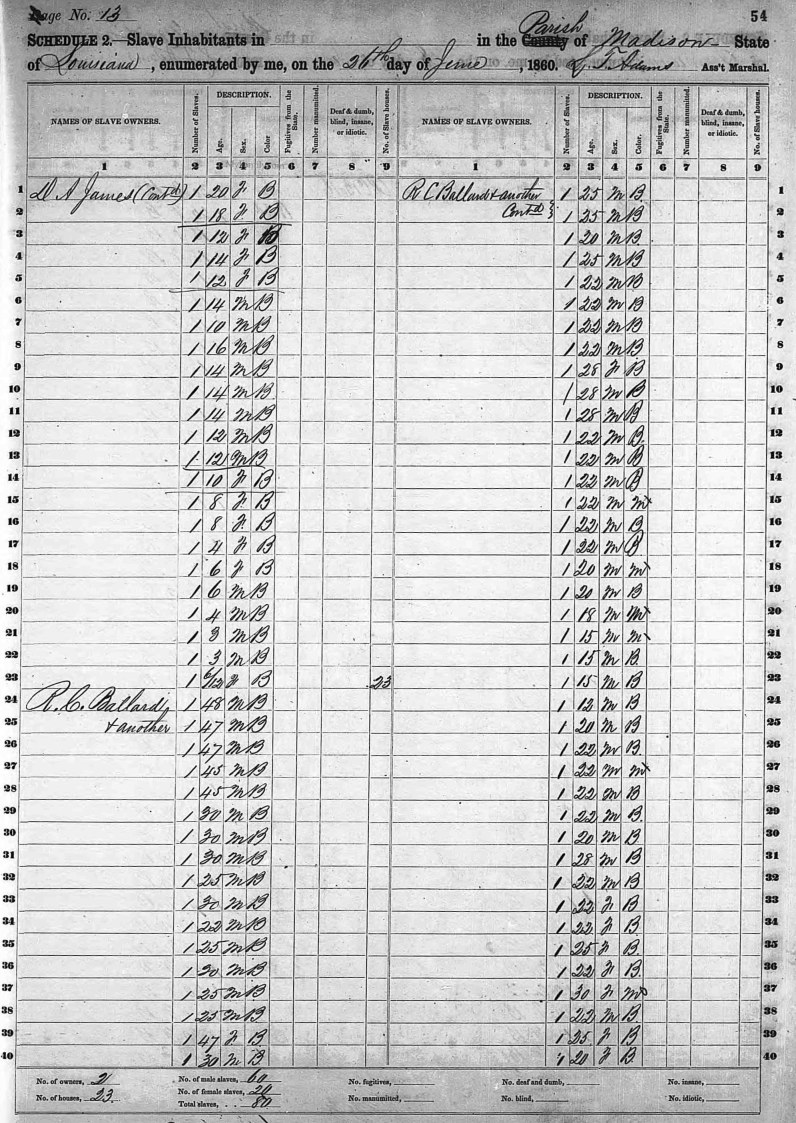 Page No. 13
54
SCHEDULE 2.—Slave Inhabitants in in the County Parish of Madison State
of Louisiana, enumerated by me, on the 26th day of June, 1860. Adams Ass't Marshal.
NAMES OF SLAVE OWNERS. Number of Slaves. DESCRIPTION. Age. Sex. Color. Fugitives from the State. Number manumitted. Deaf & dumb, blind, insane, or idiotic. No. of Slave houses. NAMES OF SLAVE OWNERS. Number of Slaves. DESCRIPTION. Age. Sex. Color. Fugitives from the State. Number manumitted. Deaf & dumb, blind, insane, or idiotic. No. of Slave houses.
1 2 3 4 5 6 7 8 9 1 2 3 4 5 6 7 8 9
1 D A James (Cont'd) 1 20 F B R C Ballard & another 1 25 M B 1
2 1 18 F B Cont'd 1 25 M B 2
3 1 12 F B 1 20 M B 3
4 1 14 F B 1 25 M B 4
5 1 12 F B 1 22 M B 5
6 1 14 M B 1 22 M B 6
7 1 10 M B 1 22 M B 7
8 1 16 M B 1 22 M B 8
9 1 14 M B 1 28 F B 9
10 1 14 M B 1 28 M B 10
11 1 14 M B 1 28 M B 11
12 1 12 M B 1 22 M B 12
13 1 12 M B 1 22 M B 13
14 1 10 F B 1 22 M B 14
15 1 8 F B 1 22 M M 15
16 1 8 F B 1 22 M B 16
17 1 4 F B 1 22 M B 17
18 1 6 F B 1 20 M M 18
19 1 6 M B 1 20 M B 19
20 1 4 M B 1 18 M M 20
21 1 3 M B 1 15 M M 21
22 1 3 M B 1 15 M B 22
23 1 6/12 F B 23 1 15 M B 23
24 R. C. Ballard 1 48 M B 1 12 M B 24
25 & another 1 47 M B 1 20 M B 25
26 1 47 M B 1 22 M B 26
27 1 45 M B 1 22 M M 27
28 1 45 M B 1 22 M B 28
29 1 30 M B 1 22 M B 29
30 1 30 M B 1 20 M B 30
31 1 30 M B 1 28 M B 31
32 1 25 M B 1 22 M B 32
33 1 30 M B 1 22 F B 33
34 1 22 M B 1 22 F B 34
35 1 25 M B 1 25 F B 35
36 1 30 M B 1 22 F B 36
37 1 25 M B 1 30 F M 37
38 1 25 M B 1 22 M B 38
39 1 47 F B 1 25 F B 39
40 1 30 M B 1 20 F B 40
No. of owners, 2 No. of male slaves, 60 No. fugitives, No. deaf and dumb, No. insane,
No. of houses, 23. No. of female slaves, 20 No. manumitted, No. blind, No. idiotic,
Total slaves, 80